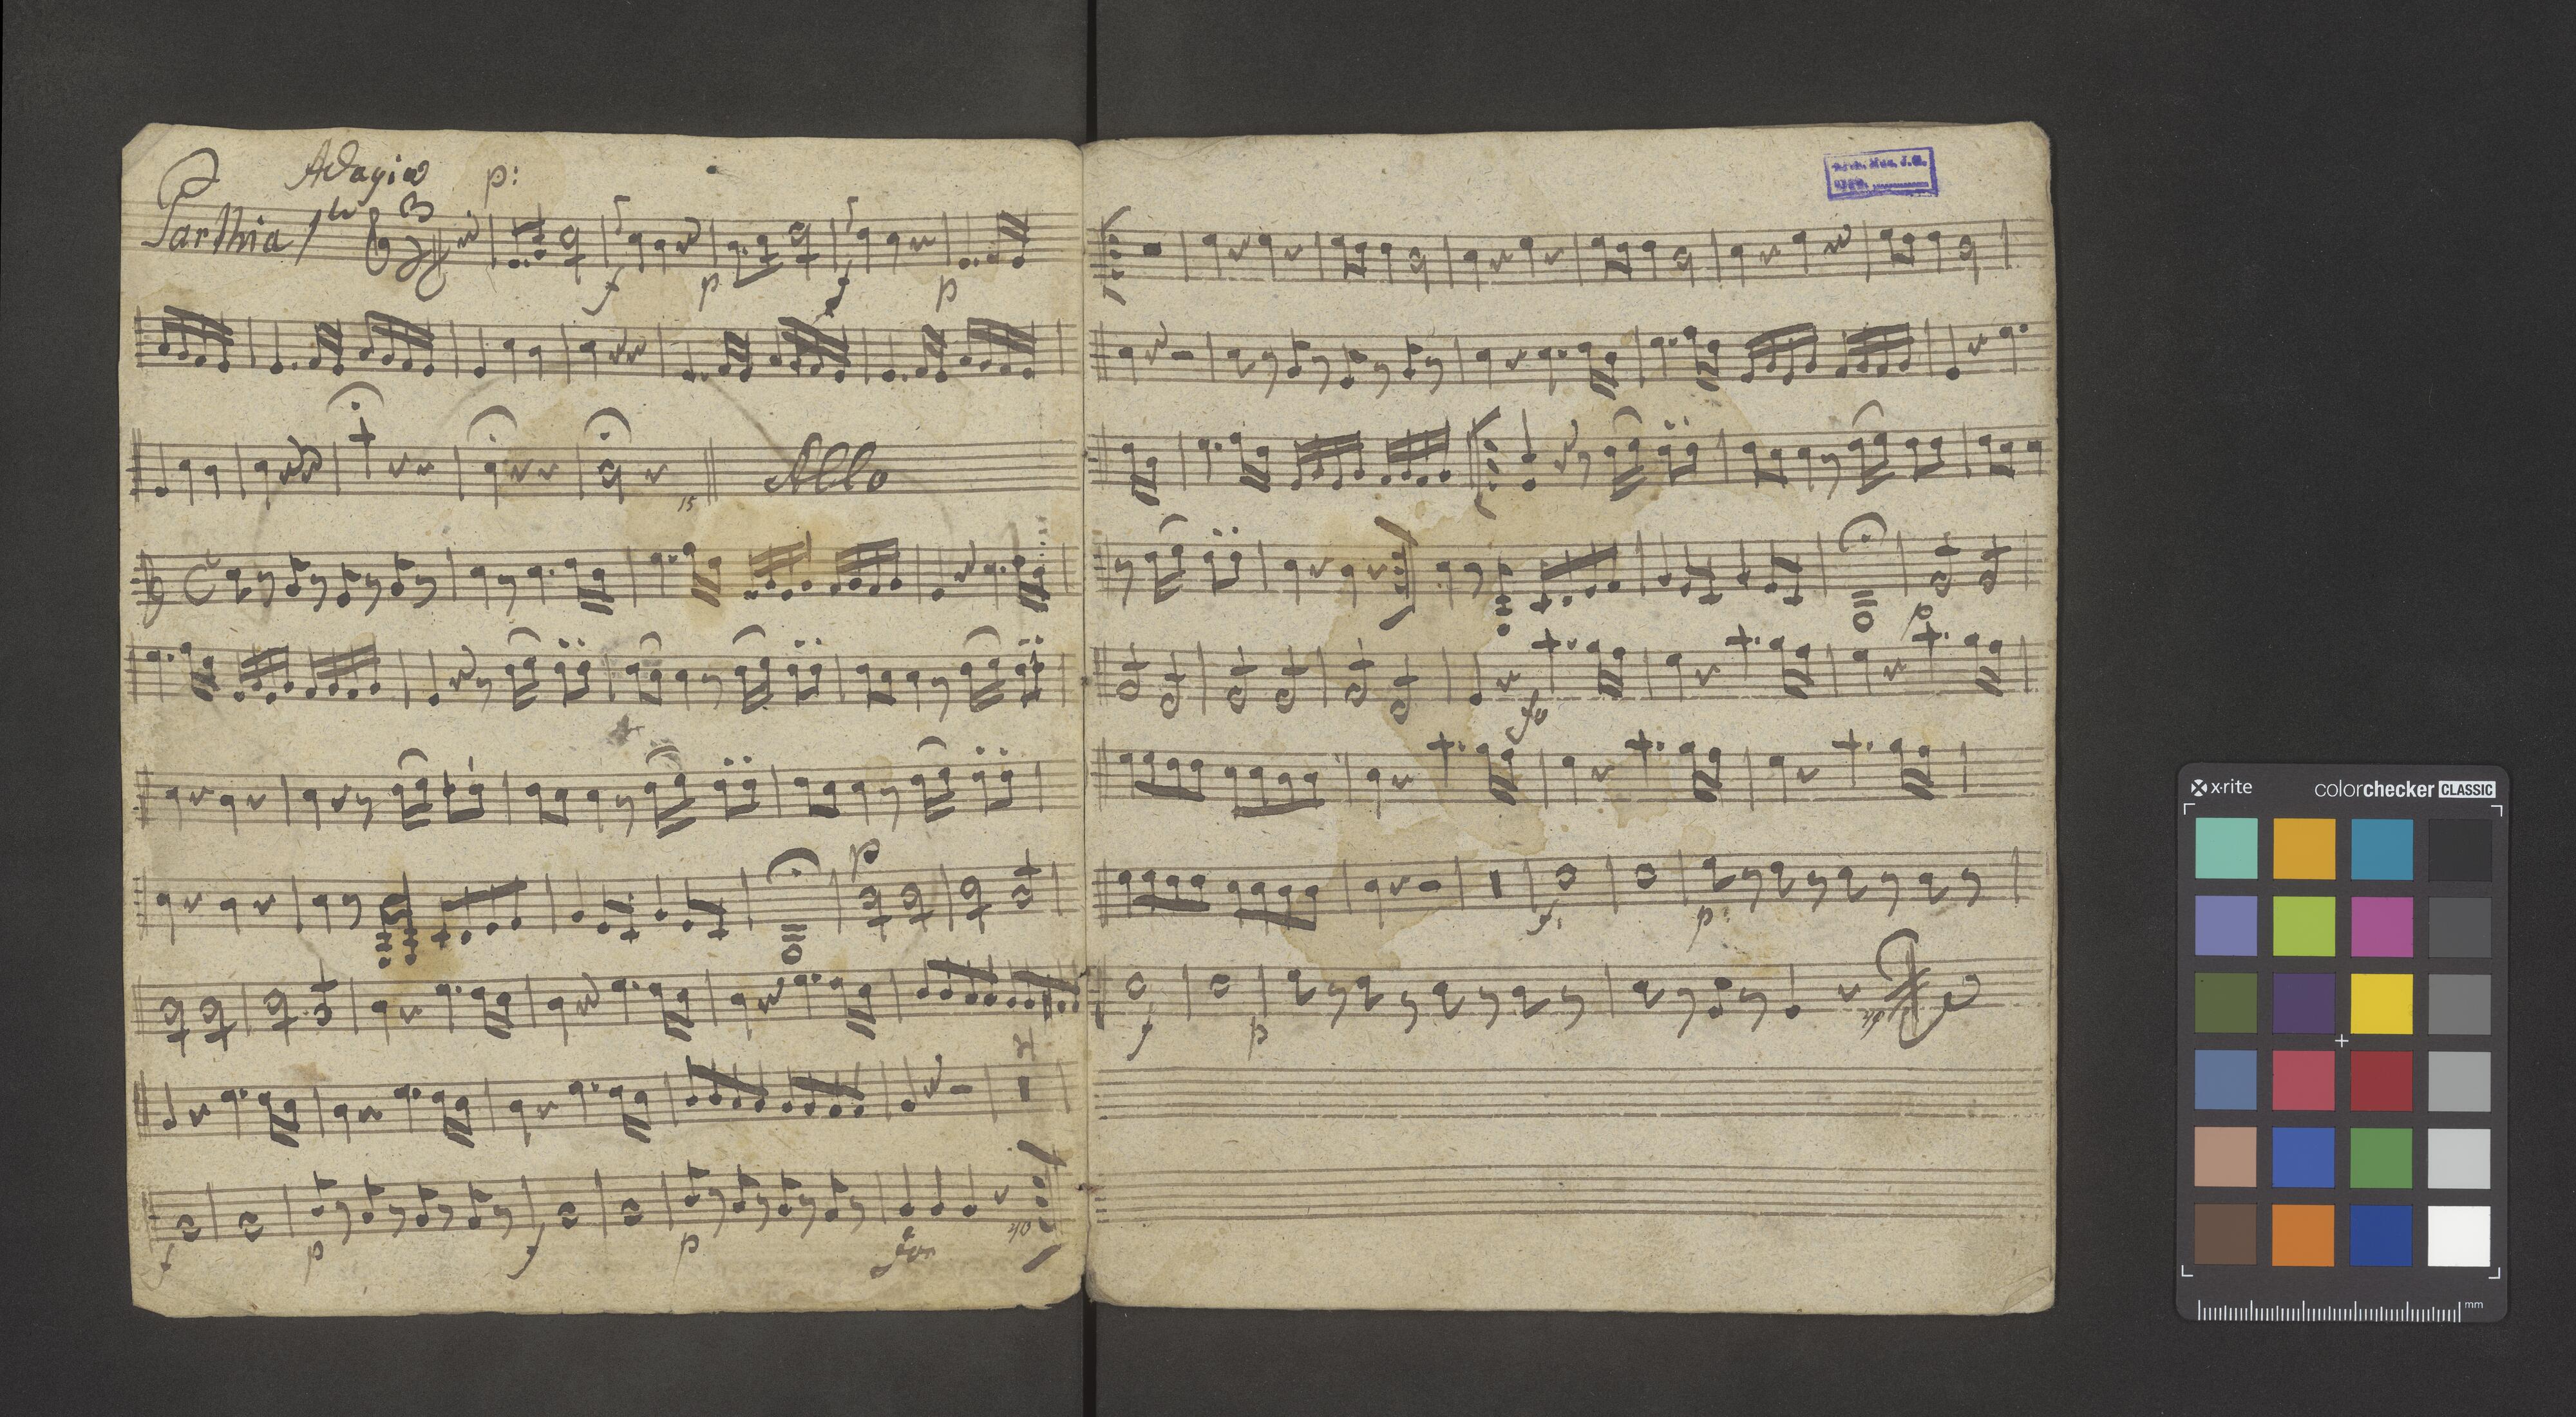 Adagio p:
Parthia 1
3
f p f p
15 Allo
p
f p f p for 40
p
fo
f. p:
f p
x-rite colorchecker CLASSIC
mm